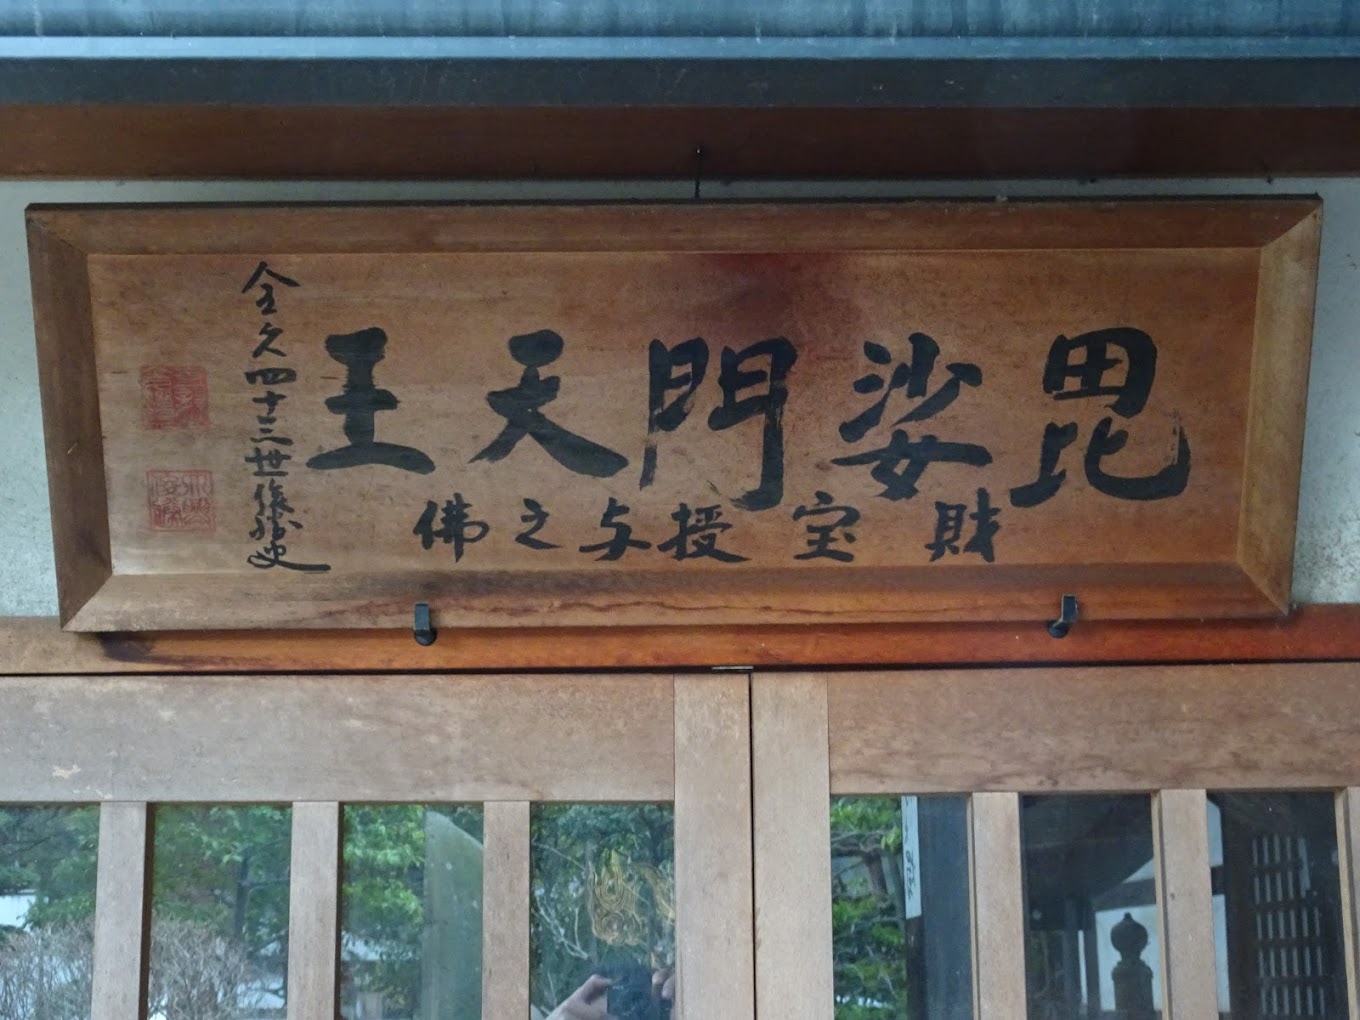 毘娑門天王
財宝授与之佛
全久四十三世俊勝叟